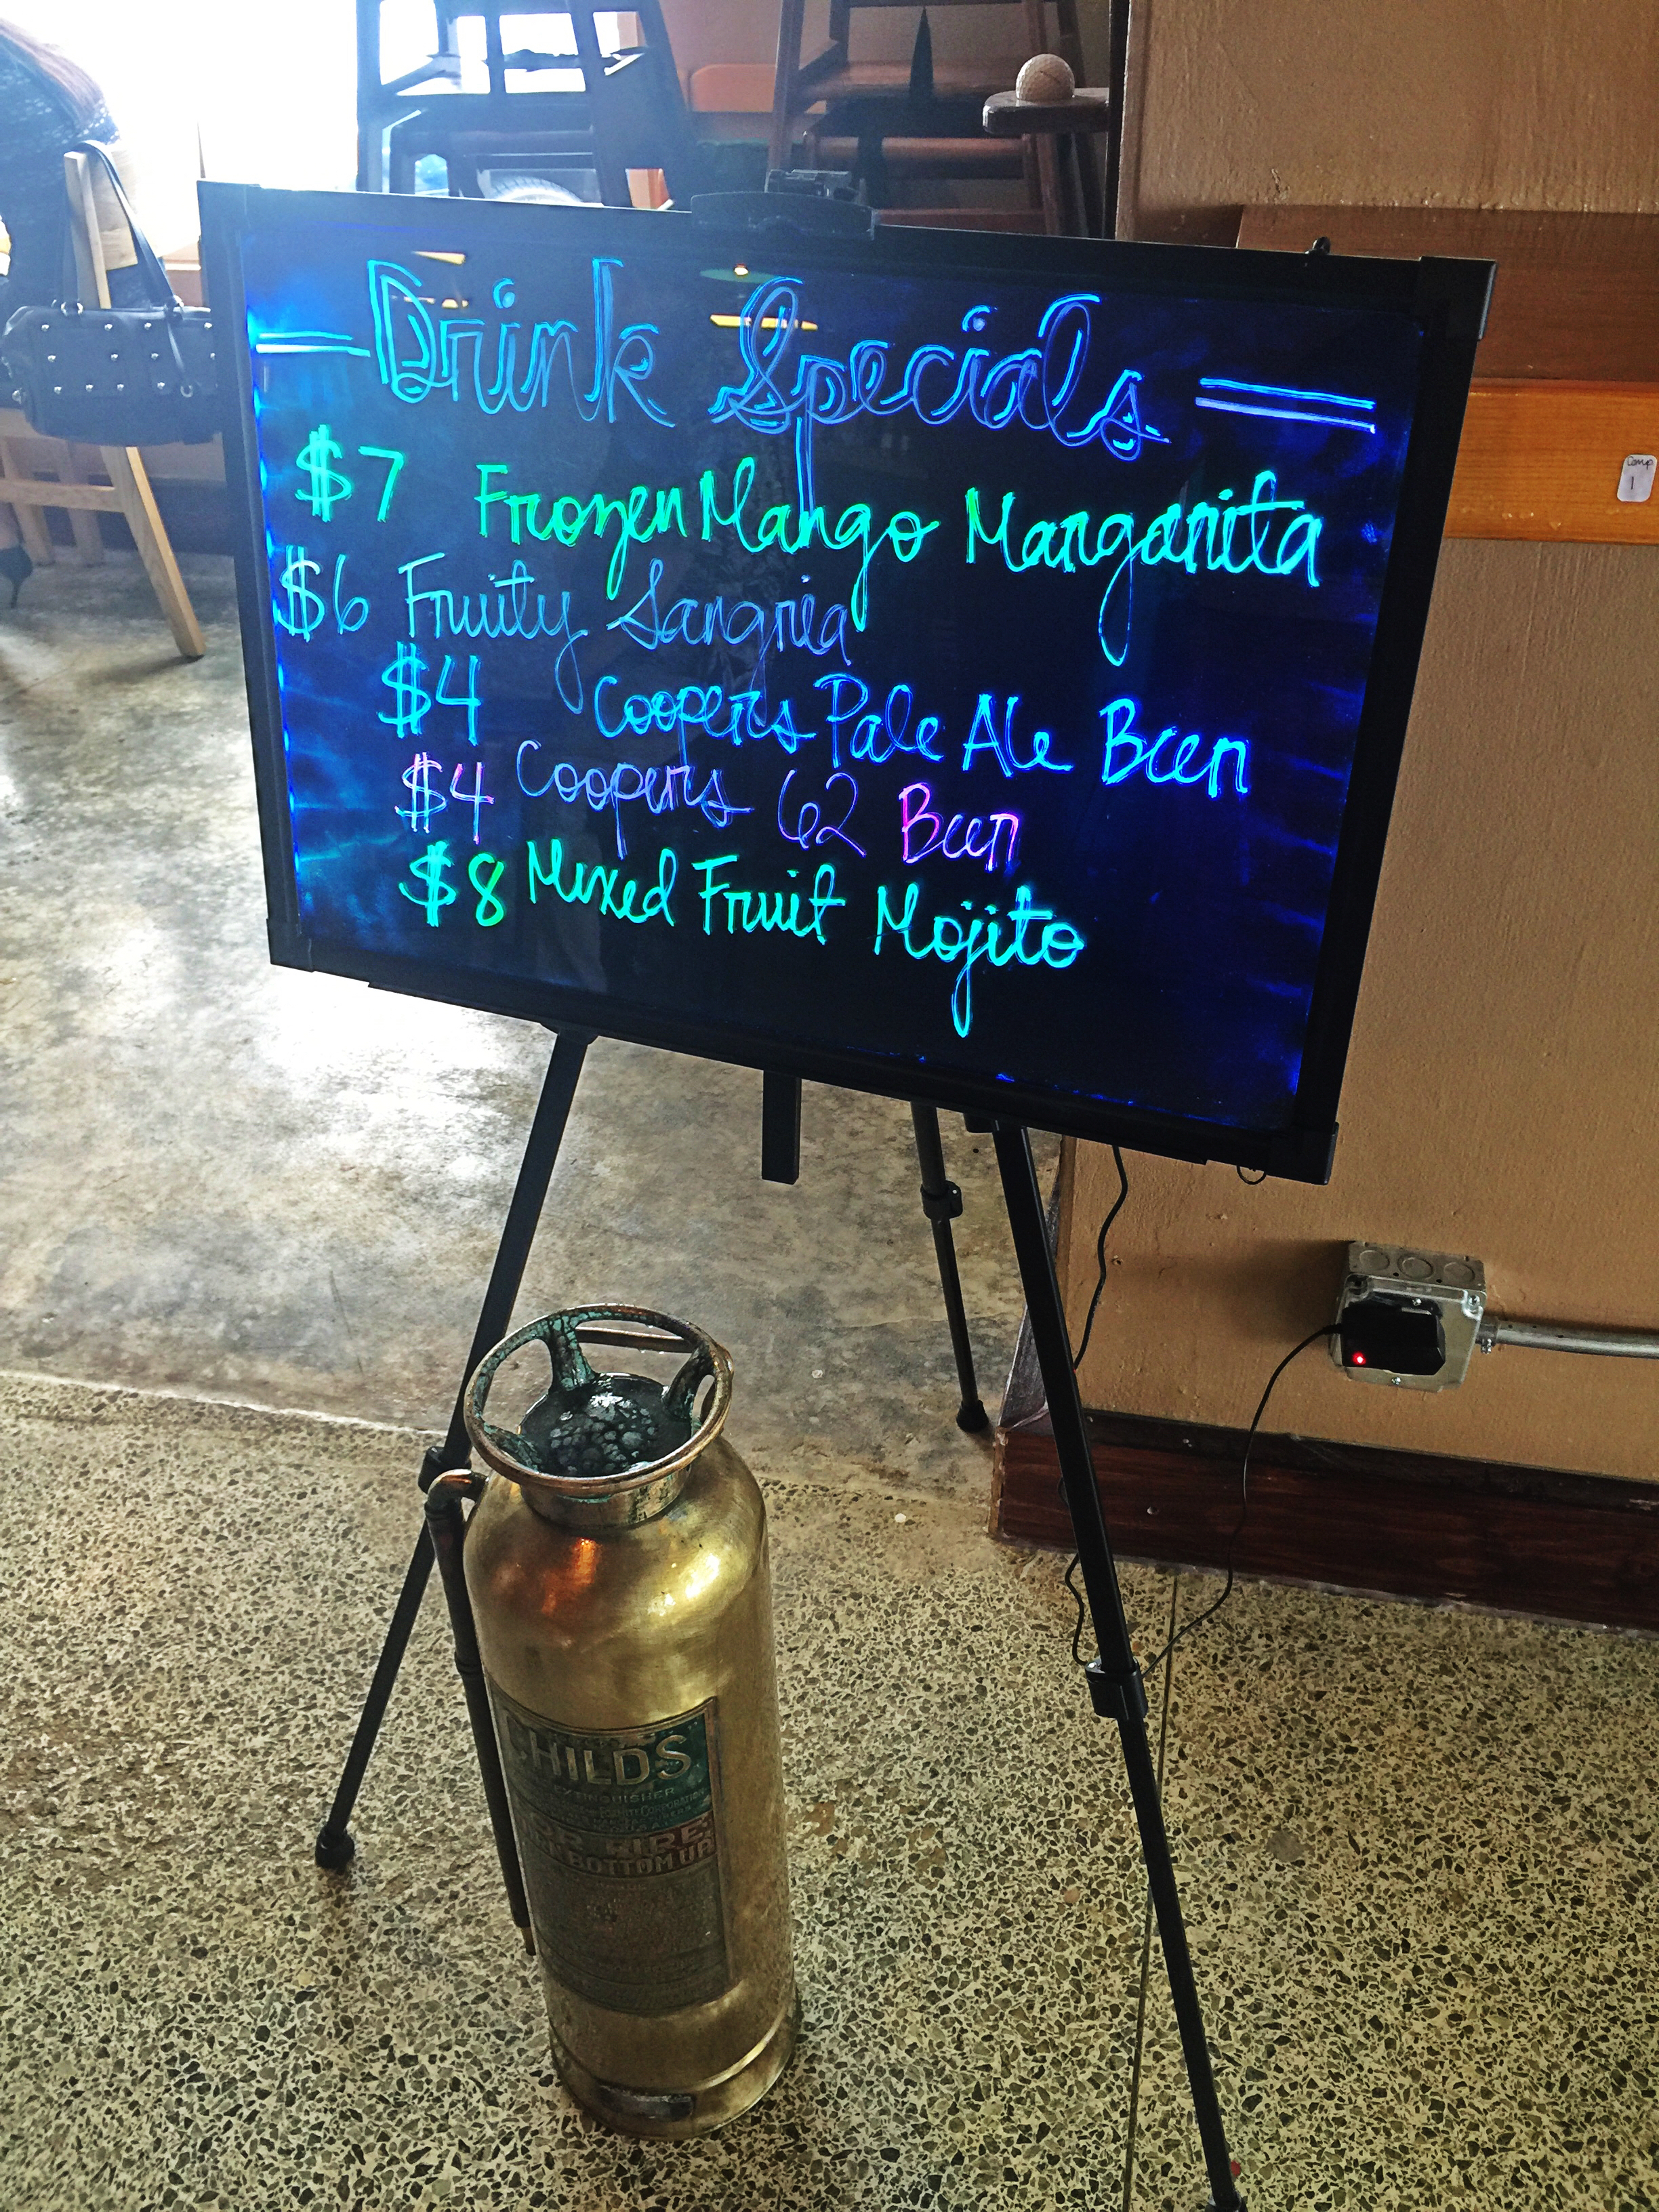 Drink Specials
$7 Frozen Mango Margarita
$6 Fruity Sangria
$4 Coopers Pale Ale Beer
$4 Coopers 62 Beer
$8 Mixed Fruit Mojito
1
CHILDS
EXTINGUISHER
FIRE
BOTTOM UP